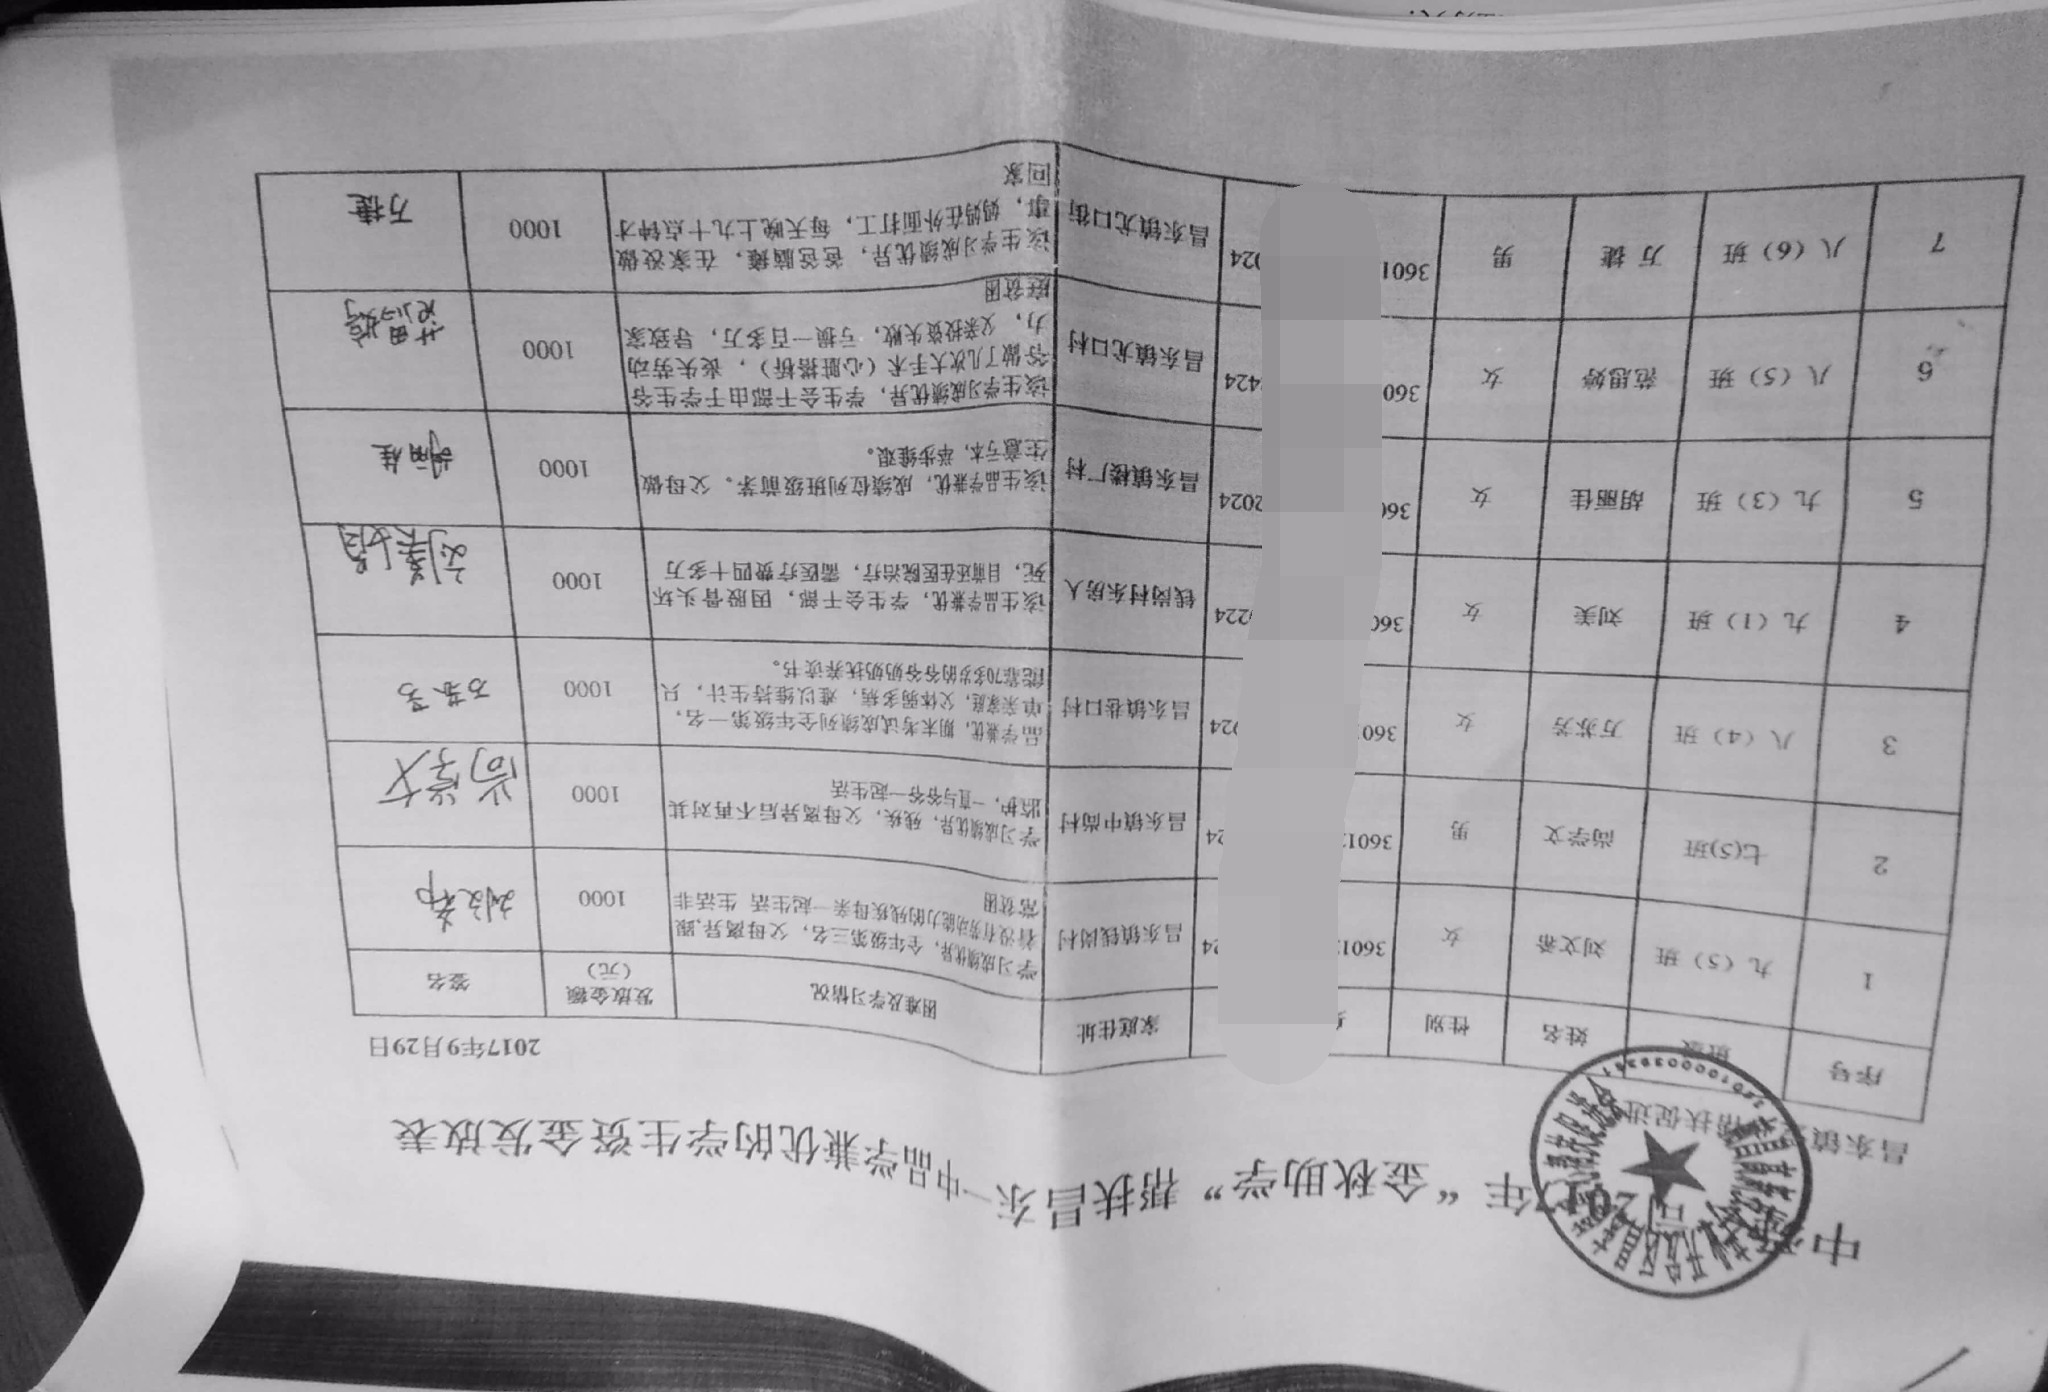 中 2017年“金秋助学”帮扶昌东一中品学兼优的学生资金发放表
昌东镇 帮扶促进
2017年9月29日
序号 班级 姓名 性别 家庭住址 困难及学习情况 发放金额（元） 签名
1 九（5）班 刘文希 女 3601 24 昌东镇钱岗村 学习成绩优异，全年级第三名，父母离异,跟
着没有劳动能力的残疾母亲一起生活 生活非
常贫困 1000 刘文希
2 七(5)班 尚学文 男 3601 24 昌东镇中尚村 学习成绩优异，残疾，父母离异后不再对其
监护，一直与爷爷一起生活 1000 尚学文
3 八（4）班 万苏芳 女 3601 024 昌东镇巷口村 品学兼优，期末考试成绩列全年级第一名，
单亲家庭，父体弱多病，难以维持生计，只
能靠70多岁的爷爷奶奶抚养读书。 1000 万苏芳
4 九（1）班 刘美 女 360 0224 钱岗村东房人 该生品学兼优，学生会干部，因股骨头坏
死，目前还在医院治疗，需医疗费四十多万 1000
5 九（3）班 胡丽佳 女 360 2024 昌东镇楼厂村 该生品学兼优，成绩位列班级前茅。父母做
生意亏本，举步维艰。 1000 胡丽佳
6 八（5）班 范思婷 女 360 2424 昌东镇尤口村 该生学习成绩优异，学生会干部由于学生爷
爷做了几次大手术（心脏搭桥），丧失劳动
力，父亲投资失败，亏损一百多万，导致家
庭贫困 1000
7 八（6）班 万捷 男 3601 024 昌东镇尤口街 该生学习成绩优异，爸爸脑瘫，在家没做
事，妈妈在外面打工，每天晚上九十点钟才
回家 1000 万捷